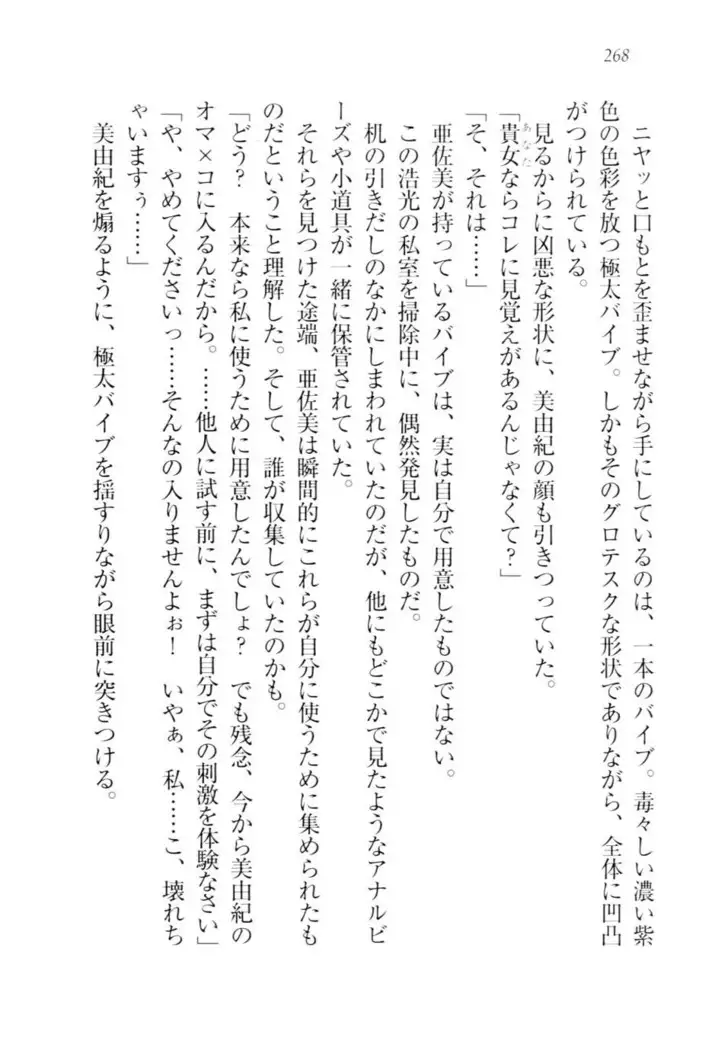 268
ニヤッと口もとを歪ませながら手にしているのは、一本のバイブ。毒々しい濃い紫
色の色彩を放つ極太バイブ。しかもそのグロテスクな形状でありながら、全体に凹凸
がつけられている。
見るからに凶悪な形状に、美由紀の顔も引きつっていた。
「貴女ならコレに見覚えがあるんじゃなくて？」
あなた
「そ、それは……」
亜佐美が持っているバイブは、実は自分で用意したものではない。
この浩光の私室を掃除中に、偶然発見したものだ。
机の引きだしのなかにしまわれていたのだが、他にもどこかで見たようなアナルビ
ーズや小道具が一緒に保管されていた。
それらを見つけた途端、亜佐美は瞬間的にこれらが自分に使うために集められたも
のだということ理解した。そして、誰が収集していたのかも。
「どう？　本来なら私に使うために用意したんでしょ？　でも残念、今から美由紀の
オマ×コに入るんだから。……他人に試す前に、まずは自分でその刺激を体験なさい」
「や、やめてくださいっ……そんなの入りませんよぉ！　いやぁ、私……こ、壊れち
ゃいますぅ……」
美由紀を煽るように、極太バイブを揺すりながら眼前に突きつける。